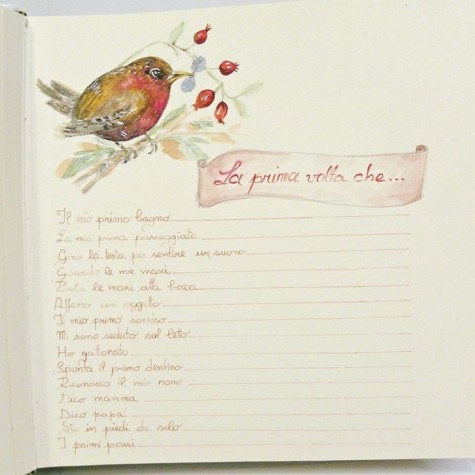 La prima volta che...
Il mio primo bagno
La mia prima passeggiata
Giro la testa per sentire un suono
Guardo le mie mani
Porto le mani alla bocca
Afferro un oggetto
Il mio primo sorriso
Mi sono seduto sul letto
Ho gattonato
Spunta il primo dentino
Riconosco il mio nome
Dico mamma
Dico papà
Sto in piedi da solo
I primi passi